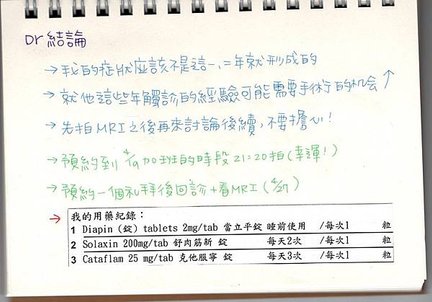 Dr 結論
→我的症狀應該不是這一、二年就形成的
→就他這些年觸診的經驗可能需要手術的机会↑
→先拍MRI之後再來討論後續,不要擔心!
→預約到 加班的時段21:20拍(幸運!)
→預約一個礼拜後回診+看MRI
→ 我的用藥紀錄:
1 Diapin (錠) tablets 2mg/tab 當立平錠 睡前使用 /每次1 粒
2 Solaxin 200mg/tab 舒肉筋新 錠 每天2次 /每次1 粒
3 Cataflam 25 mg/tab 克他服寧 錠 每天3次 /每次1 粒